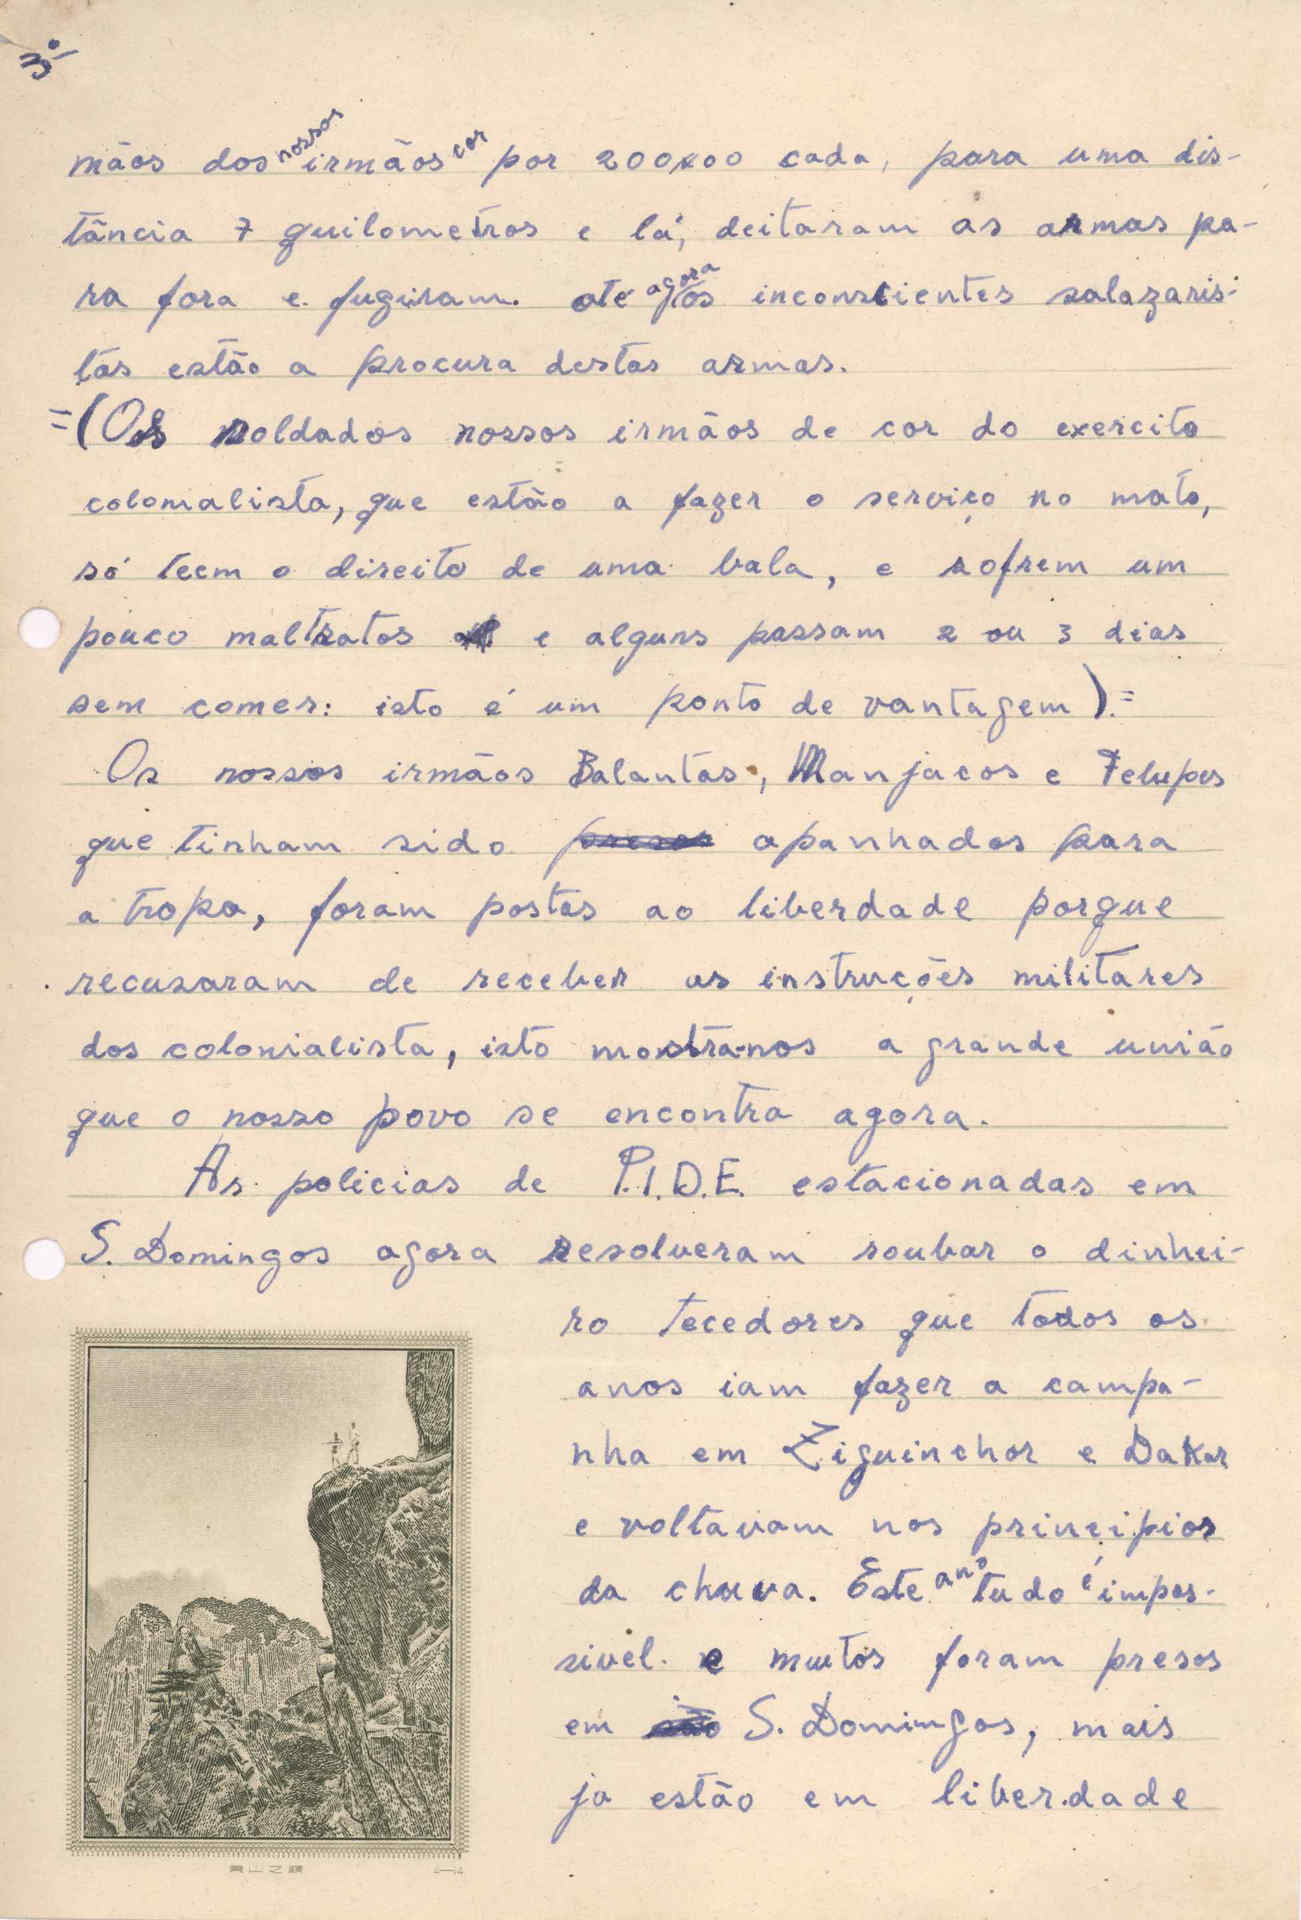 3º
mãos dos nossos irmãos cor por 200x00 cada, para uma dis-
tância 7 quilometros e lá, deitaram as armas pa-
ra fora e fugiram. até agora os inconscientes salazaris-
tas estão a procura destas armas.
=(Os soldados nossos irmãos de cor do exercito
colonialista, que estão a fazer o serviço no mato,
só teem o direito de uma bala, e sofrem um
pouco maltratos e alguns passam 2 ou 3 dias
sem comer: isto é um ponto de vantagem).=
Os nossos irmãos Balantas, Manjacos e Felupes
que tinham sido presos apanhados para
a tropa, foram postos ao liberdade porque
recusaram de receber as instruções militares
dos colonialista, isto mostra-nos a grande união
que o nosso povo se encontra agora.
As policias de P.I.D.E. estacionadas em
S. Domingos agora resolveram roubar o dinhei-
ro tecedores que todos os
anos iam fazer a campa-
nha em Ziguinchor e Dakar
e voltavam nos principios
da chuva. Este ano tudo é impos-
sivel. e muitos foram presos
em S. Domingos, mais
ja estão em liberdade
黄山之巅
4—14